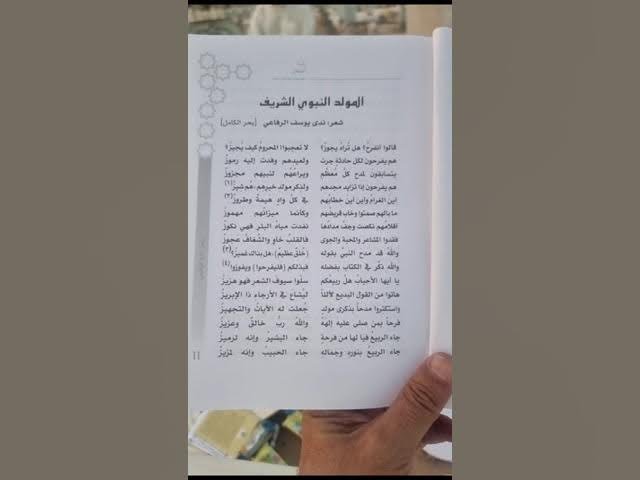 المولد النبوي الشريف
شعر: ندى يوسف الرفاعي [بحر الكامل]
قالوا أتفرحُ؟ هل تُراهُ يجوزُ؟ لا تعجبوا! المحرومُ كيف يُجيزُ؟
هم يفرحون لكل حادثة جرت ولعيدهم وفدت إليه رموزُ
يتسابقون لمدح كلِّ مُعظّمٍ ويراعُهم لنبيهم مجزوزُ
هم يفرحون إذا تزايد مجدهم ولذكر مولد خيرهم، هُم شِيزُ(١)
أين الغرامُ وأين أين خطابُهم في كلِّ وادٍ هيمةٌ وطروزُ(٢)
ما بالهم صمتوا وخاب قريضُهم وكأنما ميزانُهم مهموزُ
أقلامُهم نكصت وجفَّ مدادُها نفدت مياهُ البئرِ فهي نكوزُ
فقدوا المشاعر والمحبة والجوى فالقلبُ خاوٍ والشغافُ عجوزُ
والله قد مدح النبيَّ بقوله (خُلُقٍ عظيمٍ)، هل بذاك غميزُ؟(٣)
والله ذكّر في الكتاب بفضله فبذلكم (فليفرحوا) ويفوزوا(٤)
يا أيها الأحبابُ هلَّ ربيعُكم سلُّوا سيوفَ الشعرِ فهو هزيزُ
هاتوا من القول البديع لآلئاً ليُشاعَ في الأرجاءِ ذا الإبريزُ
واستكثروا مدحاً بذكرى مولدٍ جُعلت له الآياتُ والتجهيزُ
فرحاً بمن صلى عليه إلهُهُ واللهُ ربٌّ خالقٌ وعزيزُ
جاء الربيعُ فيا لها من فرحةٍ جاء البشيرُ وإنه لرميزُ
جاء الربيعُ بنوره وجماله جاء الحبيبُ وإنه لمزيزُ
١١